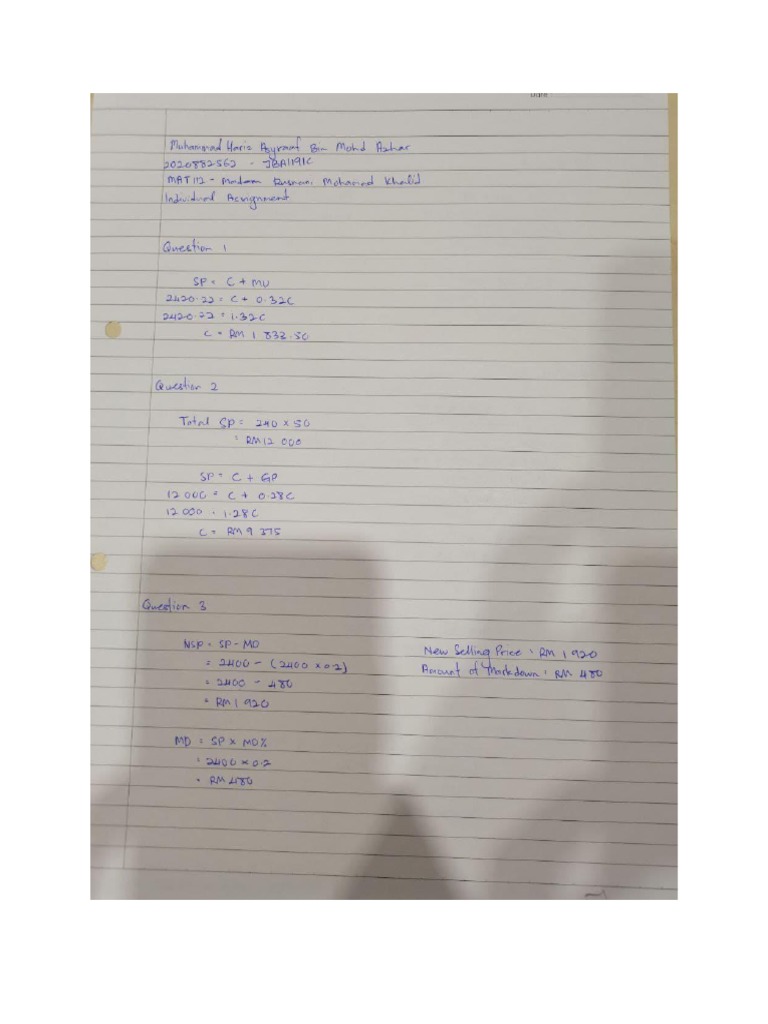 Date
Muhammad Haris Asyraaf Bin Mohd Azhar
2020882562 - JBA1191C
MAT112 - Madam Rusnani Mohamad Khalid
Individual Assignment
Question 1
SP = C + MU
2420.22 = C + 0.32C
2420.22 = 1.32C
C = RM 1 833.50
Question 2
Total SP = 240 × 50
= RM12 000
SP = C + GP
12 000 = C + 0.28C
12 000 = 1.28C
C = RM 9 375
Question 3
NSP = SP - MD
= 2400 - (2400 × 0.2)
= 2400 - 480
= RM 1 920
New Selling Price : RM 1 920
Amount of Markdown : RM 480
MD = SP × MD%
= 2400 × 0.2
= RM 480